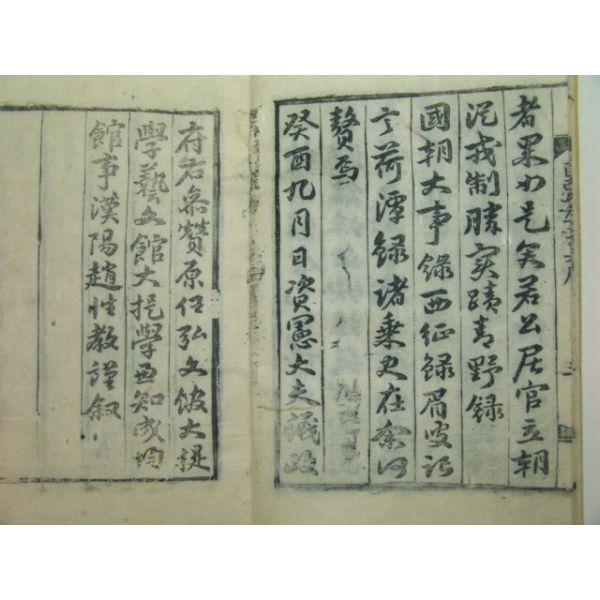 者果如是矣若公居官立朝
從戎制勝實蹟靑野錄
國朝大事錄西征錄眉叟記
言荷潭錄諸乘更在余何
贅焉
癸酉九月日資憲大夫議政
府右參贊原任弘文館大提
學藝文館大提學兼知成均
館事漢陽趙性敎謹叙